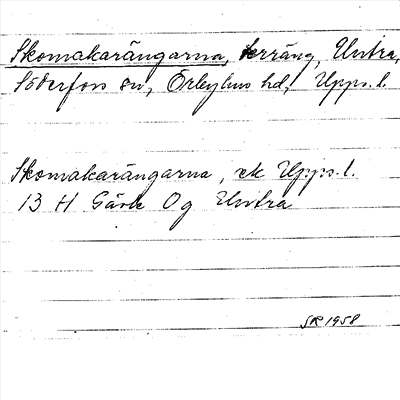 Skomakarängarna, terräng, Untra,
Söderfors sn, Örbyhus hd, Upps. l.
Skomakarängarna, ek Upps. l.
13 H Gävle Og Untra
SR 1958